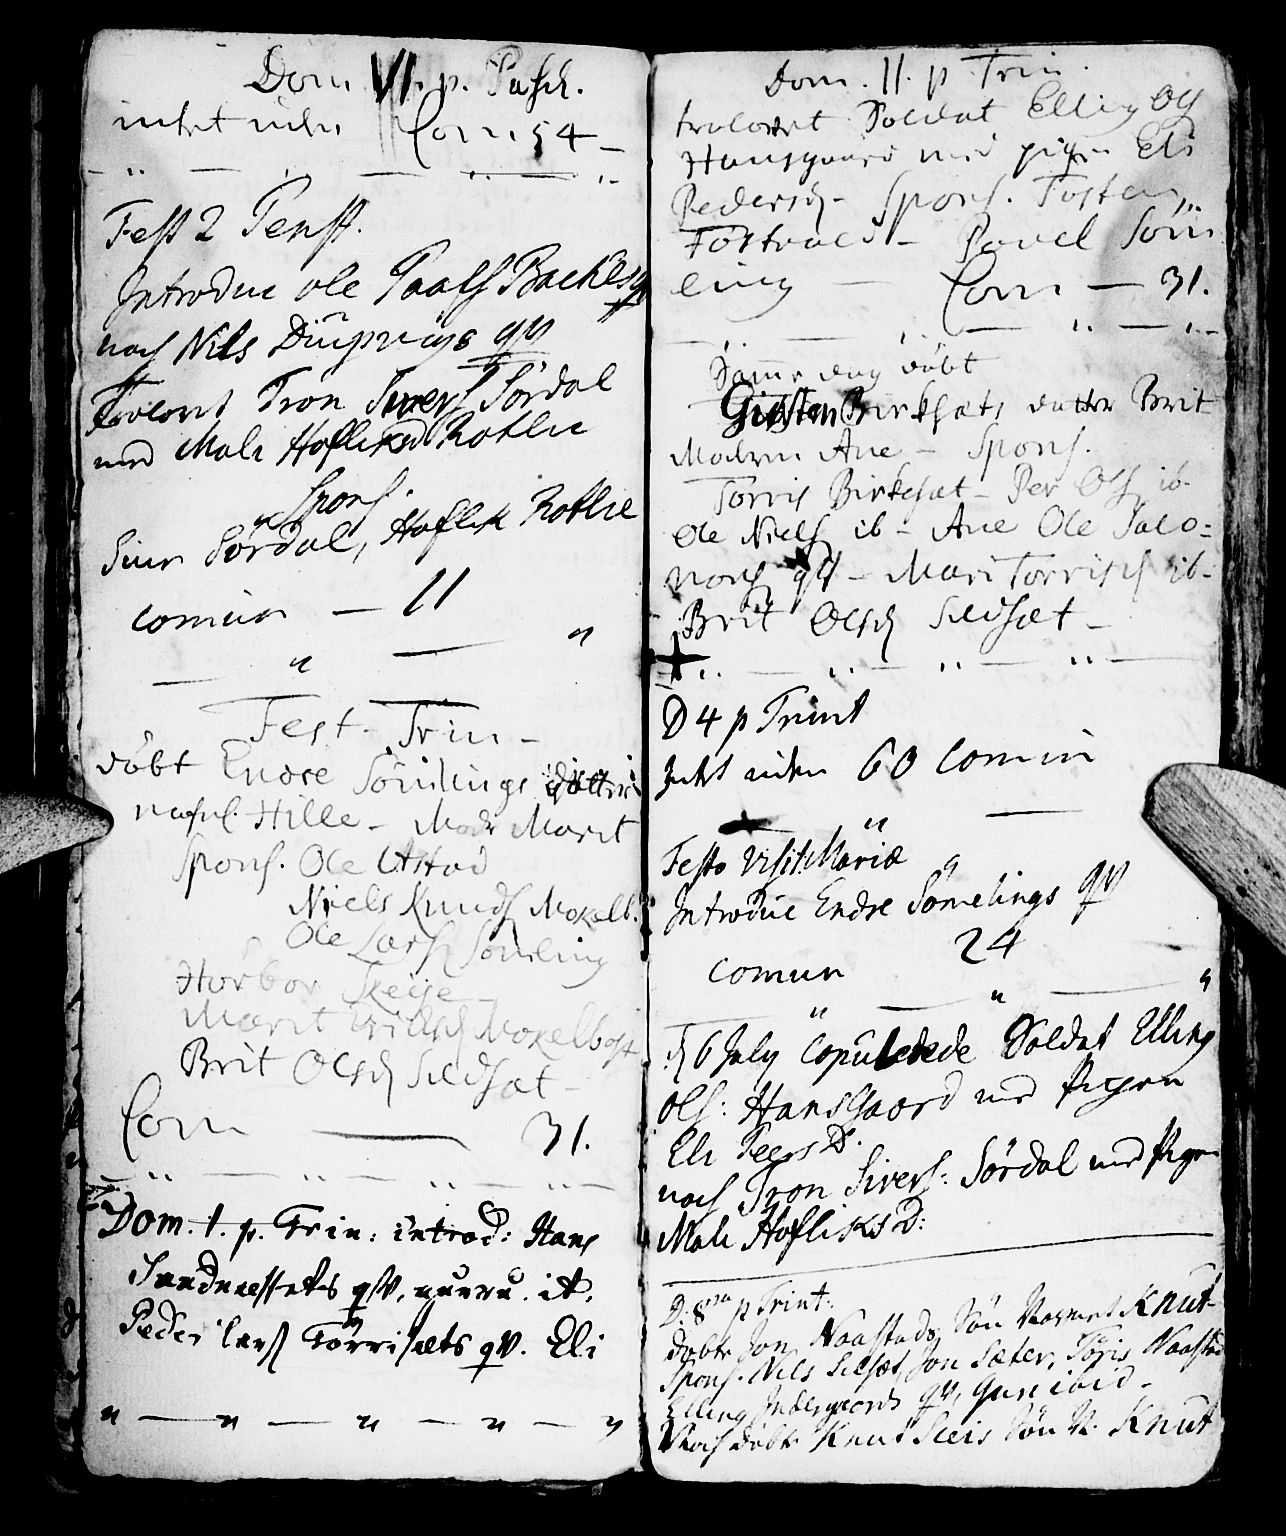 Dom. VI. p. Pasch.
intet uden Com 54 –
Fest 2 Penst.
Introduc Ole Paals Backlsg
noch Nils Diupvigs qv
Trolovet Tron Sivers Sørdal
med Mali Hofliksd Rotlie
Spons.
Siver Sørdal, Hoflik Rotlie
comun – 11
Fest Trin –
døbt Endre Sømlings datter
nafnl. Hille – Modr Marit
Spons. Ole Ustad
Niels Knuds Moxelb.
Ole Lars Sømling
Hørbor Skeye –
Marit Erichsd Moxelbost
Brit Olsd Sildsæt –
Com — 31.
Dom. 1. p. Trin: introd: Hans
Sandnessets qv, it.
Peder Lars Torrisæts qv. Eli
Dom. II. p Trin.
trolovet Soldat Elling Ols
Hansgaard med pigen Eli
Pedersd – Spons. Tosten
Povel Søm
ling — Com — 31.
Samme dag døbt
Giersten Birksæts datter Brit
Moderen Ane – Spons.
Torris Birkesæt – Per Ols ib.
Ole Niels ib – Ane Ole Salo-
mons qv – Mari Torrisd ib-
Brit Olsd Sildsæt –
D 4 p Trinit
Intet uden 60 comun
Festo Visit: Mariæ
Introduc Endre Sømelings qv
comun 24
d 6 July Copulerede Soldat Elling
Ols: Hansgaard med Pigen
Eli Peers D.
noch Tron Sivers: Sørdal med Pigen
Mali Hofliks D:
D. 8va p Trinit:
døbte Jon Naastads Søn Navnet Knut
Spons. Nils Silsæt, Jon Sæter, Toris Naastad
Elling Indergaards qv, Guri ibid –
Noch døbt Knut Sleis Søn N. Knut